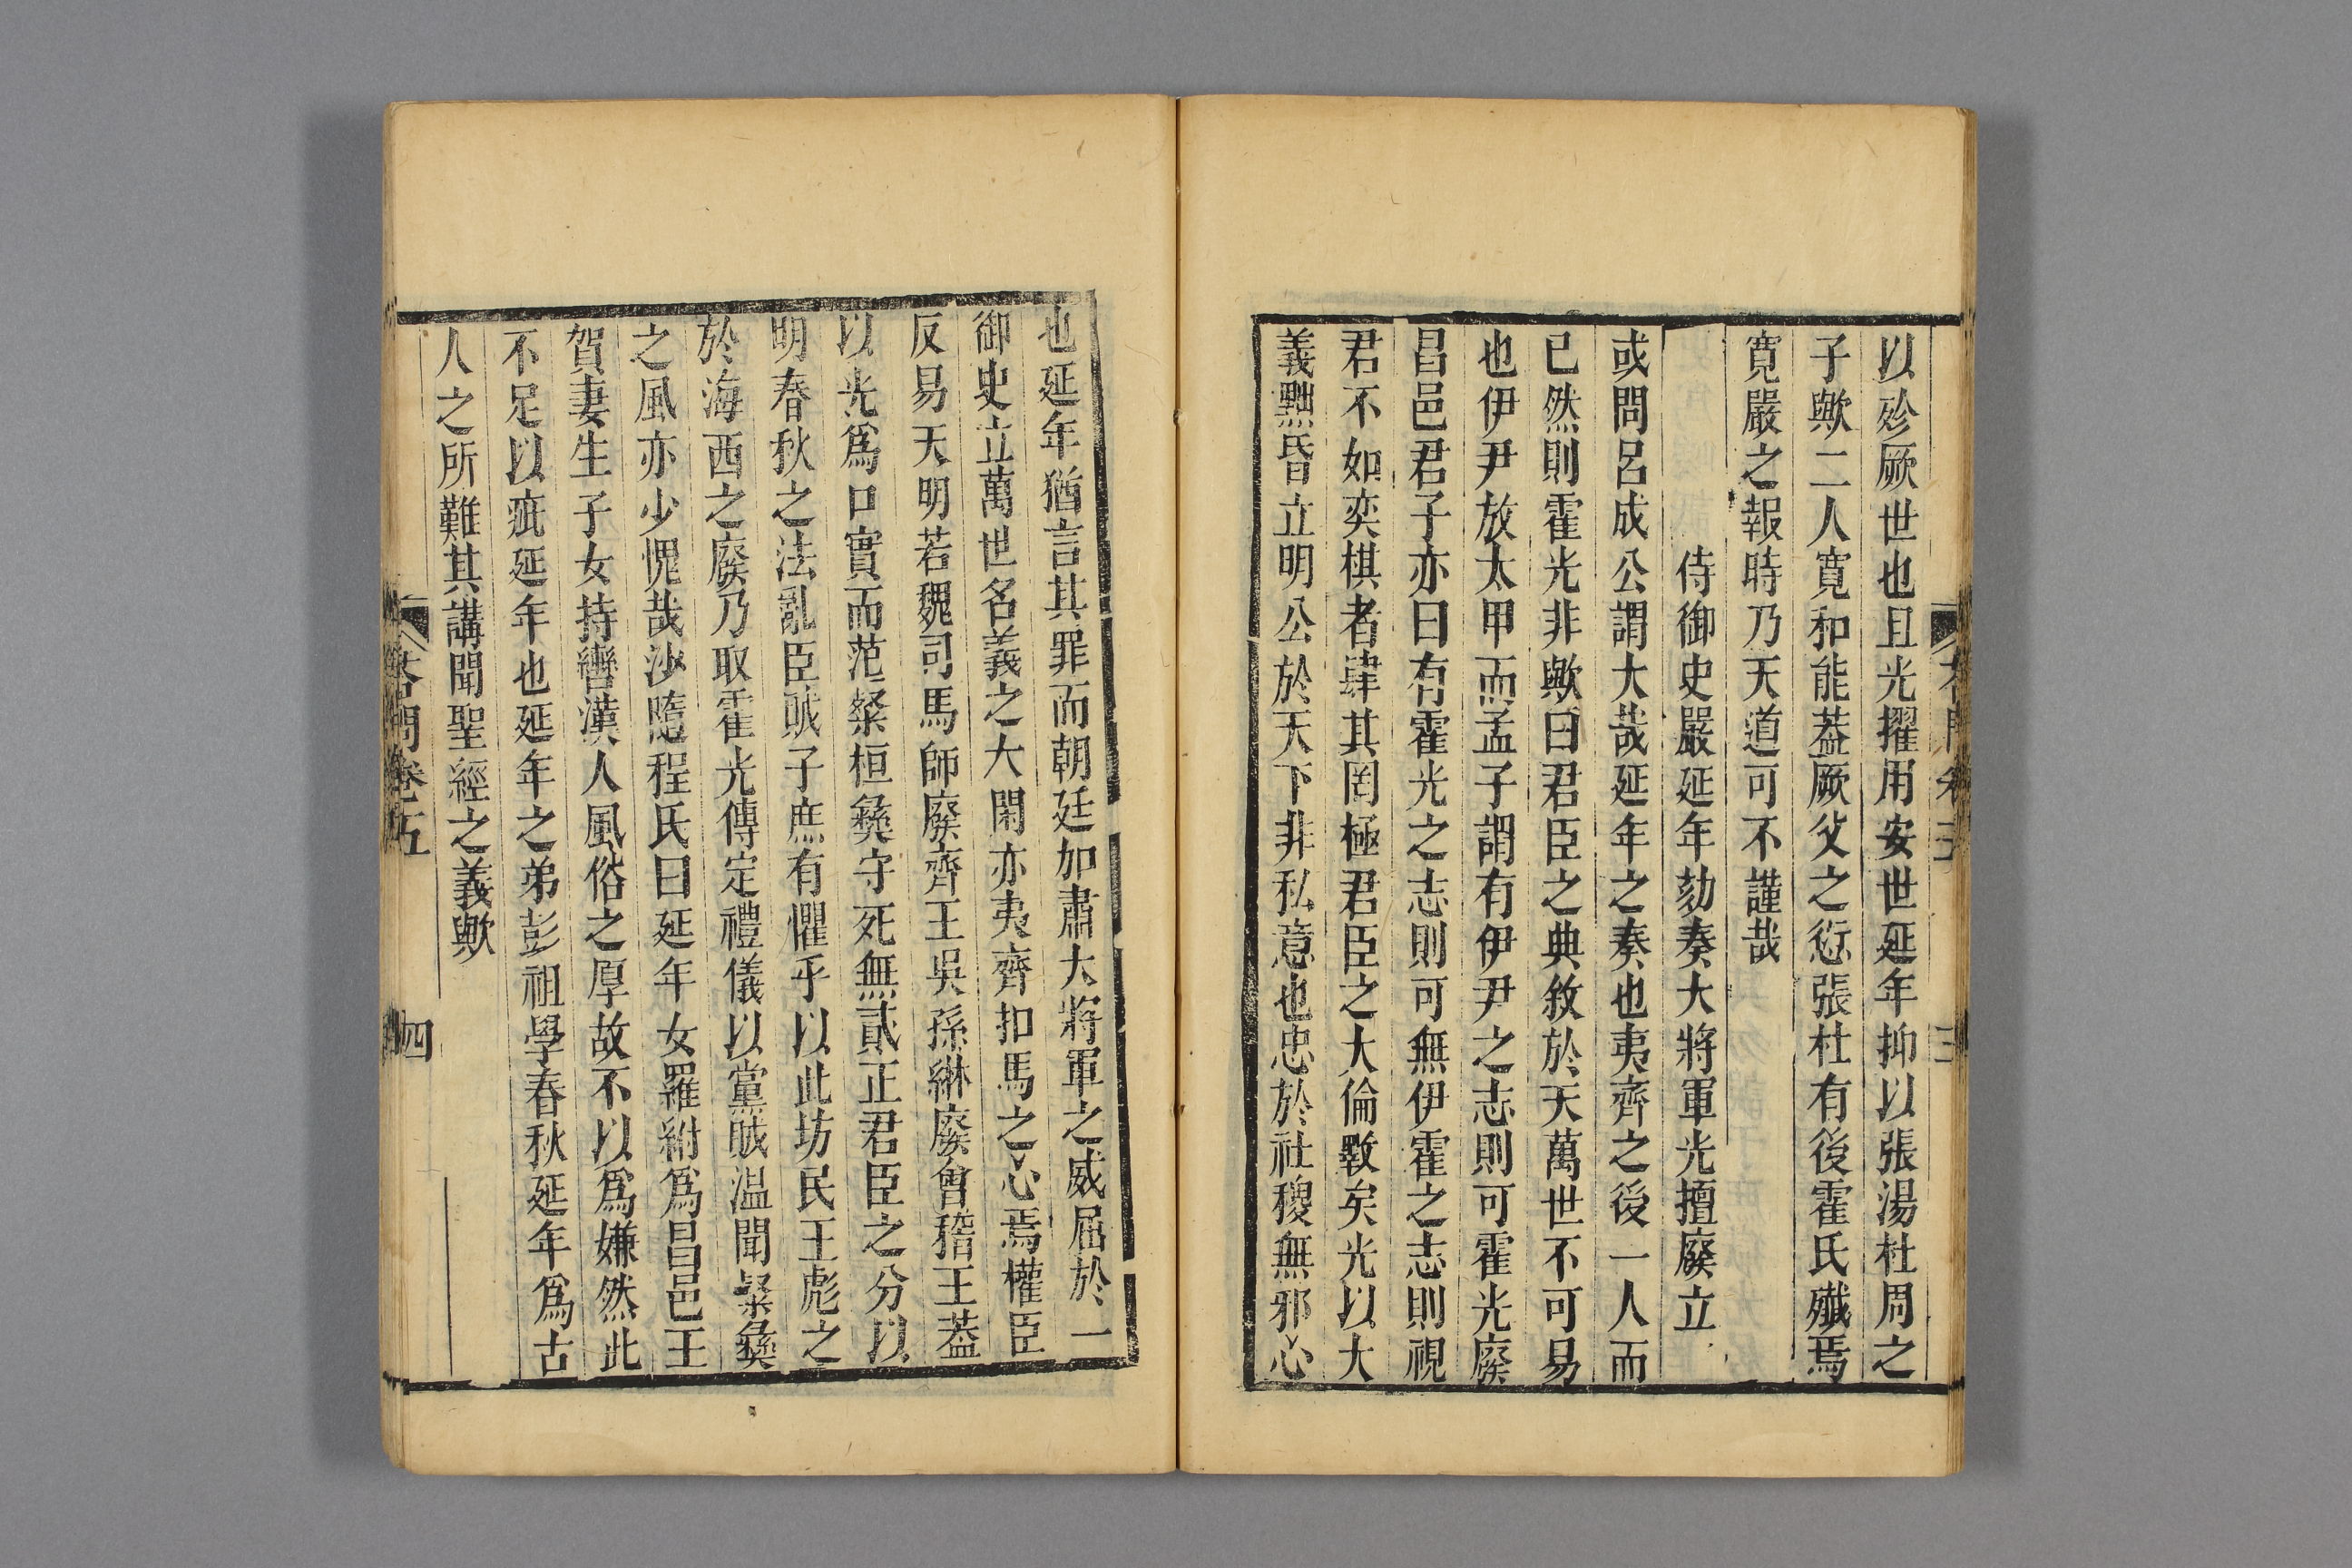 以殄厥世也且光擢用安世延年抑以張湯杜周之
子歟二人寬和能葢厥父之愆張杜有後霍氏殱焉
寛嚴之報時乃天道可不謹哉
侍御史嚴延年劾奏大將軍光擅廢立
或問呂成公謂大哉延年之奏也夷齊之後一人而
已然則霍光非歟曰君臣之典敘於天萬世不可易
也伊尹放太甲而孟子謂有伊尹之志則可霍光廢
昌邑君子亦曰有霍光之志則可無伊霍之志則視
君不如奕棋者肆其罔極君臣之大倫斁矣光以大
義黜昏立明公於天下非私意也忠於社稷無邪心
也延年猶言其罪而朝廷加肅大將軍之威屈於一
御史立萬世名義之大閑亦夷齊扣馬之心焉權臣
反易天明若魏司馬師廢齊王吳孫綝廢會稽王葢
以光爲口實而范粲桓彝守死無貳正君臣之分以
明春秋之法亂臣賊子庶有懼乎以此坊民王彪之
於海西之廢乃取霍光傳定禮儀以黨賊溫聞粲彝
之風亦少愧哉沙隨程氏曰延年女羅紨爲昌邑王
賀妻生子女持轡漢人風俗之厚故不以爲嫌然此
不足以疵延年也延年之弟彭祖學春秋延年爲古
人之所難其講聞聖經之義歟
答問卷五
四